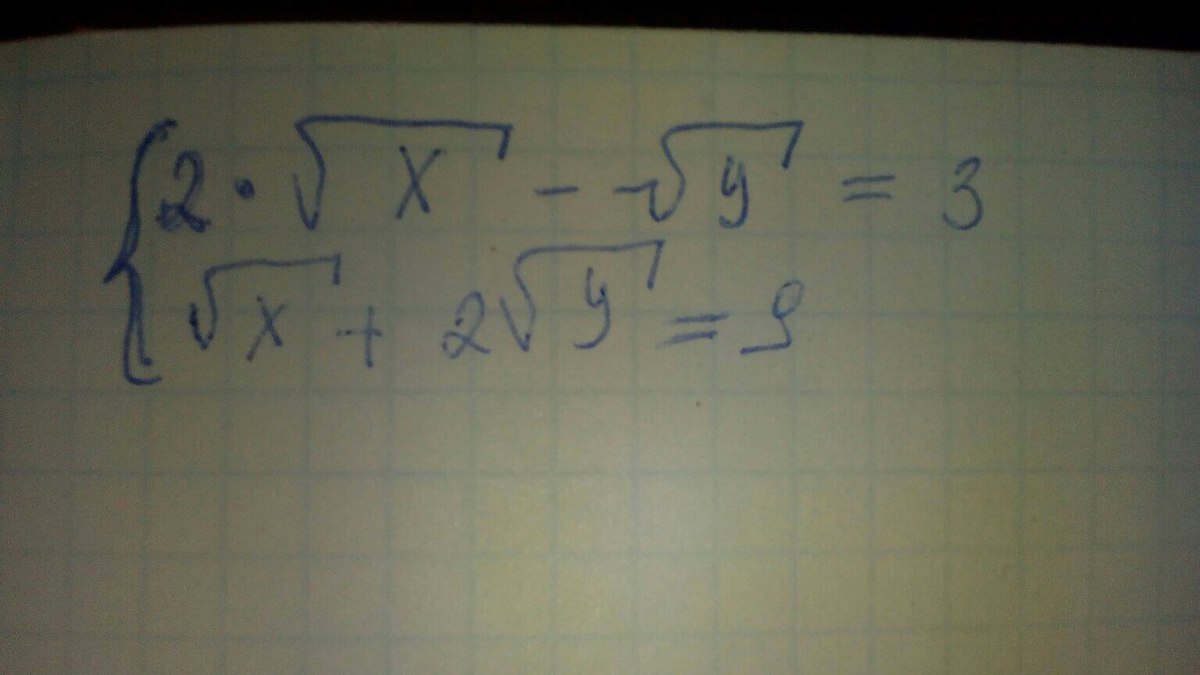 2·√x - √y = 3
√x + 2√y = 9